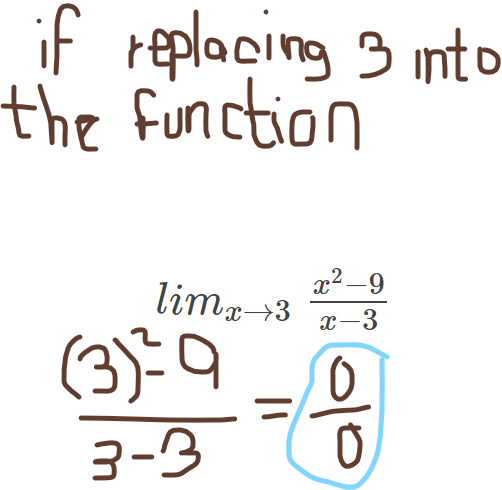 if replacing 3 into
the function
lim x→3 x²−9 / x−3
(3)²−9 / 3−3 = 0/0